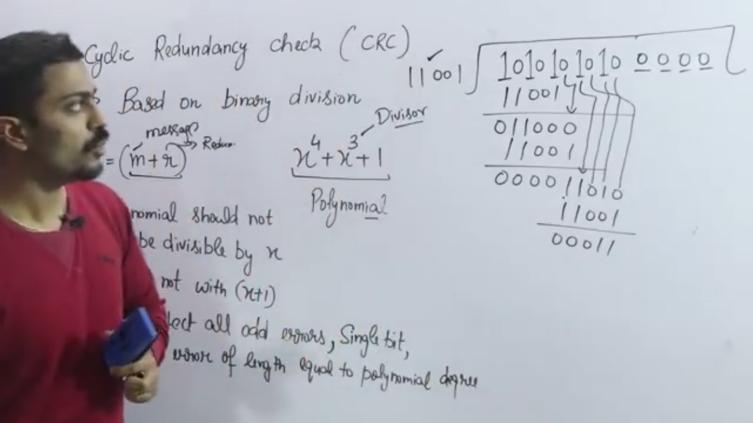 Cyclic Redundancy check (CRC)
Based on binary division
message
= (m+r) → Redun
x⁴+x³+1
Divisor
Polynomial
nomial should not
be divisible by x
not with (x+1)
tect all odd errors, Single bit,
error of length equal to polynomial degree
11001 1010101010 0000
11001
011000
11001
000011010
11001
00011